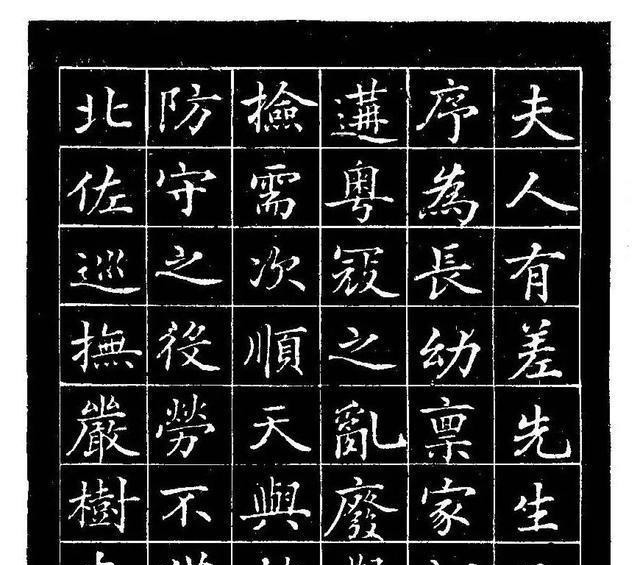 夫人有差先生
序為長幼稟家
遘粵寇之亂廢
檢需次順天與
防守之後勞不
北佐巡撫嚴樹